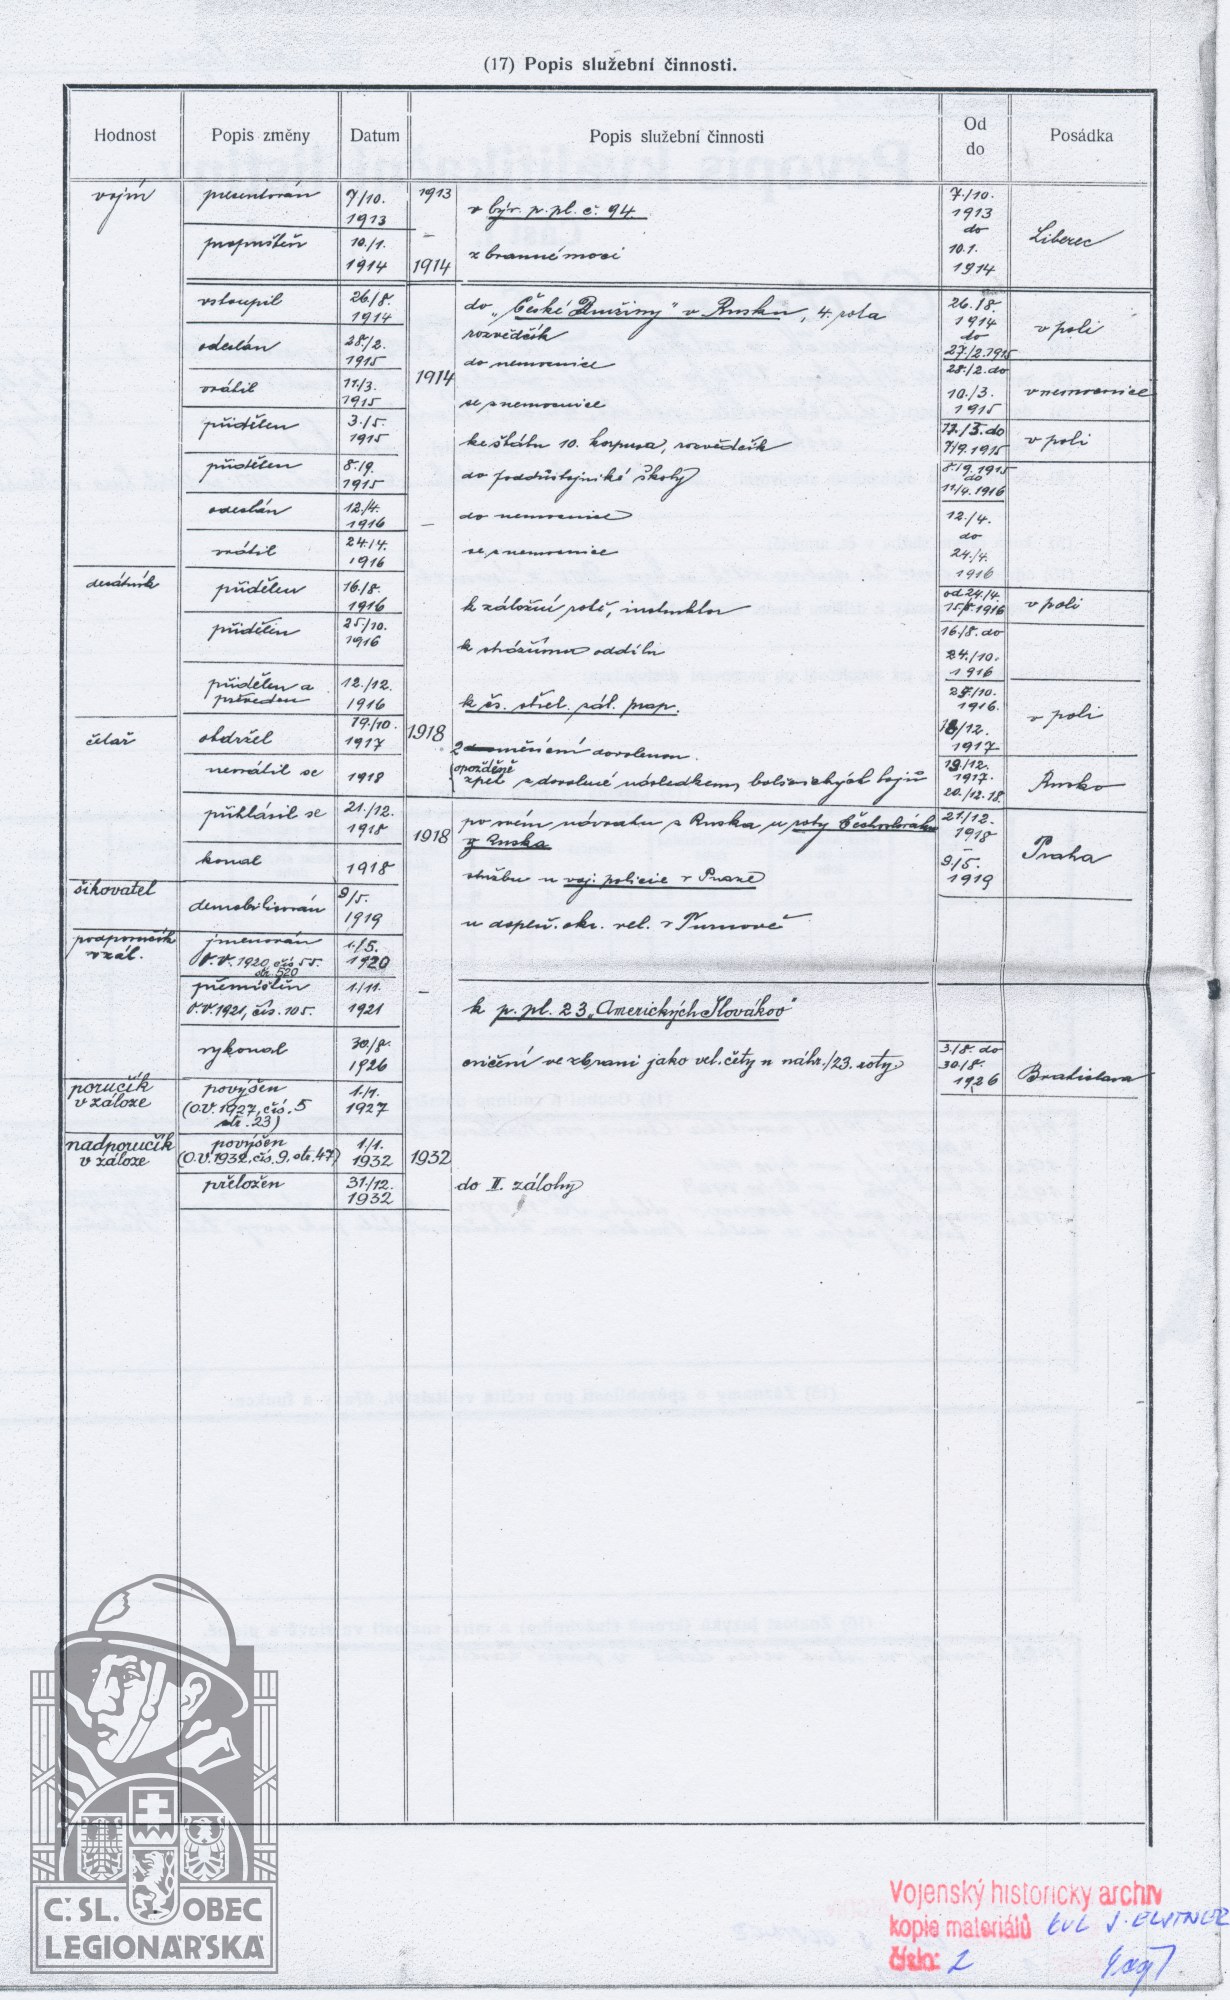 (17) Popis služební činnosti.
Hodnost Popis změny Datum Popis služební činnosti Od do Posádka
vojín presentován 7/10. 1913 1913 v býv. p. pl. č. 94. 7/10. 1913 do 10.1. 1914 Liberec
propuštěn 10./1. 1914 – 1914 z branné moci
vstoupil 26./8. 1914 1914 do „České Družiny" v Rusku, 4. rota 26./8. 1914 do 27./2. 1915 v poli
rozvědčík
odeslán 28./2. 1915 do nemocnice 28./2. do 10./3. 1915 v nemocnici
vrátil 11./3. 1915 se z nemocnice
přidělen 3./5. 1915 ke štábu 10. korpusu, rozvědčík do 7/9. 1915 v poli
přidělen 8./9. 1915 do poddůstojnické školy 8./9. 1915 do 11./4. 1916
odeslán 12./4. 1916 – do nemocnice 12./4. do 24./4. 1916
vrátil 24./4. 1916 se z nemocnice
desátník přidělen 16./8. 1916 k záložní rotě, instruktor od 24./4. 1916 v poli
přidělen 25./10. 1916 k strážnímu oddílu 16./8. do 24./10. 1916
přidělen a převeden 12./12. 1916 k čs. střel. zál. prap. 1916. 1917 v poli
četař obdržel 19./10. 1917 1918 2 měsíční dovolenou
nevrátil se 1918 (opožděně zpět z dovolené následkem bojů 1917. 20./12. 18. Rusko
přihlásil se 21./12. 1918 1918 po svém návratu z Ruska u roty Čechoslováků z Ruska 21./12. 1918 – 9./5. 1919 Praha
konal 1918 službu u voj. policie v Praze
šikovatel demobilisován 9/5. 1919 u doplň. okr. vel. v Turnově
podporučík v zál. jmenován V.V. 1920, čís. 55. str. 520 1./5. 1920
přemístěn V.V. 1921, čís. 105. 1./11. 1921 – k p. pl. 23 „Amerických Slovákov"
vykonal 30./8. 1926 cvičení ve zbrani jako vel. čety u náhr./23. roty 3./8. do 30./8. 1926 Bratislava
poručík v záloze povýšen (O.V. 1927, čís. 5 str. 23) 1./1. 1927
nadporučík v záloze povýšen (O.V. 1932, čís. 9, str. 47) 1./1. 1932 1932
přeložen 31./12. 1932 do II. zálohy
Č. SL. OBEC
LEGIONÁŘSKÁ
Vojenský historický archiv
kopie materiálů
číslo: 2